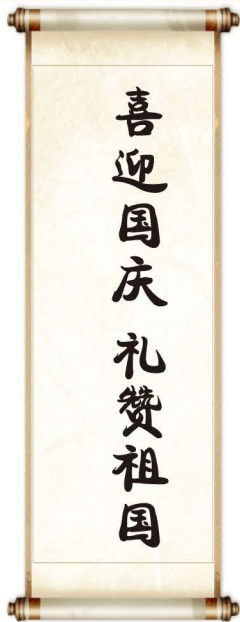 喜迎国庆 礼赞祖国